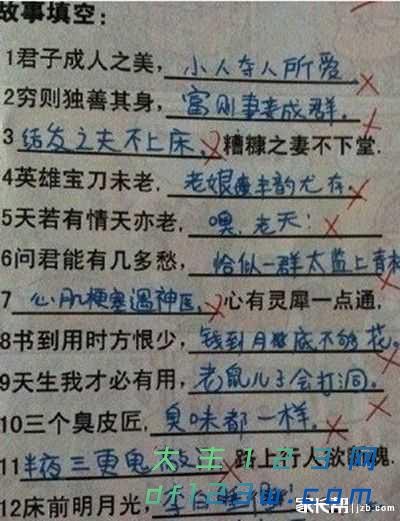 故事填空：
1君子成人之美，小人夺人所爱。
2穷则独善其身，富则妻妾成群。
3结发之夫不上床，糟糠之妻不下堂．
4英雄宝刀未老，老娘丰韵尤存。
5天若有情天亦老，噢，老天！
6问君能有几多愁，恰似一群太监上青
7心肌梗塞遇神医，心有灵犀一点通．
8书到用时方恨少，钱到月底不够花。
9天生我才必有用，老鼠儿子会打洞。
10三个臭皮匠，臭味都一样。
11半夜三更鬼 路上行人欲断魂．
12床前明月光，李白睡
大丰123网
df123w.com
家长帮 jzb.com